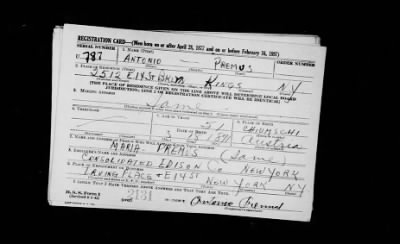 REGISTRATION CARD—(Men born on or after April 28, 1877 and on or before February 16, 1897)
SERIAL NUMBER 1. NAME (Print) ORDER NUMBER
U 787 ANTONIO PREMUS
2. PLACE OF RESIDENCE (Print)
2512 E 14 St BKLYN KINGS NY
[THE PLACE OF RESIDENCE GIVEN ON THE LINE ABOVE WILL DETERMINE LOCAL BOARD
JURISDICTION; LINE 2 OF REGISTRATION CERTIFICATE WILL BE IDENTICAL]
3. MAILING ADDRESS
Same
4. TELEPHONE
Austria
7. NAME AND ADDRESS OF PERSON WHO WILL ALWAYS KNOW YOUR ADDRESS
MARIA (Same)
8. EMPLOYER'S NAME AND ADDRESS
CONSOLIDATED EDISON Co NEW YORK
9. PLACE OF EMPLOYMENT OR BUSINESS
IRVING PLACE & E 14 ST NEW YORK NY
I AFFIRM THAT I HAVE VERIFIED ABOVE ANSWERS AND THAT THEY ARE TRUE.
D. S. S. Form 1
(Revised 4-1-42) (over)